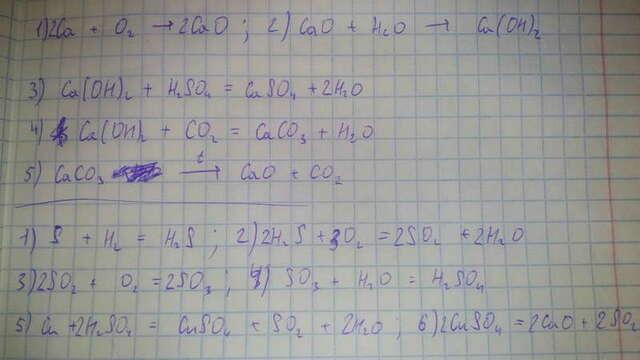 1) 2Ca + O₂ → 2CaO ; 2) CaO + H₂O → Ca(OH)₂
3) Ca(OH)₂ + H₂SO₄ = CaSO₄ + 2H₂O
4) Ca(OH)₂ + CO₂ = CaCO₃ + H₂O
5) CaCO₃ t→ CaO + CO₂
1) S + H₂ = H₂S ; 2) 2H₂S + 3O₂ = 2SO₂ + 2H₂O
3) 2SO₂ + O₂ = 2SO₃ ; 4) SO₃ + H₂O = H₂SO₄
5) Cu + 2H₂SO₄ = CuSO₄ + SO₂ + 2H₂O ; 6) 2CuSO₄ = 2CuO + 2SO₂